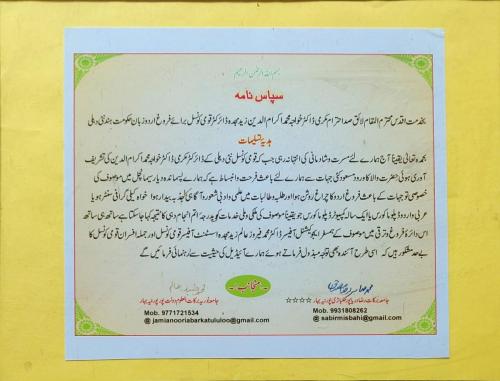 بسم اللہ الرحمٰن الرحیم
سپاس نامہ
بخدمت اقدس محترم المقام لائق صد احترام مکرمی ڈاکٹر خواجہ محمد اکرام الدین زید مجدہ ڈائرکٹر قومی کونسل برائے فروغ اردو زبان حکومت ہند نئی دہلی
ہدیۂ تسلیمات
بحمدہ تعالیٰ یقیناً آج ہمارے لئے مسرت و شادمانی کی انتہا نہ رہی جب کہ قومی کونسل نئی دہلی کے ڈائرکٹر مکرمی ڈاکٹر خواجہ محمد اکرام الدین کی تشریف
آوری ہوئی حضرت والا کا ورود مسعود کئی جہات سے ہمارے لئے باعث فرحت وانبساط ہے کہ ہمارے پسماندہ دیار سیمانچل میں موصوف کی
خصوصی توجہات کے باعث فروغ اردو کا چراغ روشن ہوا اور طلبہ و طالبات میں علمی و ادبی شعور و آگاہی کا جذبہ بیدار ہوا خواہ کیلی گرافی سنٹر ہو یا
عربی و اردو ڈپلوما کورس یا ایک سالہ کمپیوٹر ڈپلوما کورس ہو یقیناً موصوف کی ملکی و ملی خدمات کو بدرجہ اتم انجام دہی کا نتیجہ کہا جاسکتا ہے ساتھ ہی ساتھ
اس دائرہ فروغ و ترقی میں موصوف کے ہمسفر ایجوکیشنل آفیسر ڈاکٹر محمد فیروز عالم زید مجدہ اسسٹنٹ آفیسر قومی کونسل اور جملہ افسران قومی کونسل کا
بے حد مشکور ہیں کہ اسی طرح آئندہ بھی توجہ مبذول فرماتے ہوئے ہمارے آئیڈیل کی حیثیت سے رہنمائی فرمائیں گے
منجانب
جامعہ نوریہ برکات العلوم دولت پور پورنیہ بہار
Mob. 9771721534
@ jamianooriabarkatululoo@gmail.com
جامعہ برکات رضا پورنیہ بہار
Mob. 9931808262
@ sabirmisbahi@gmail.com